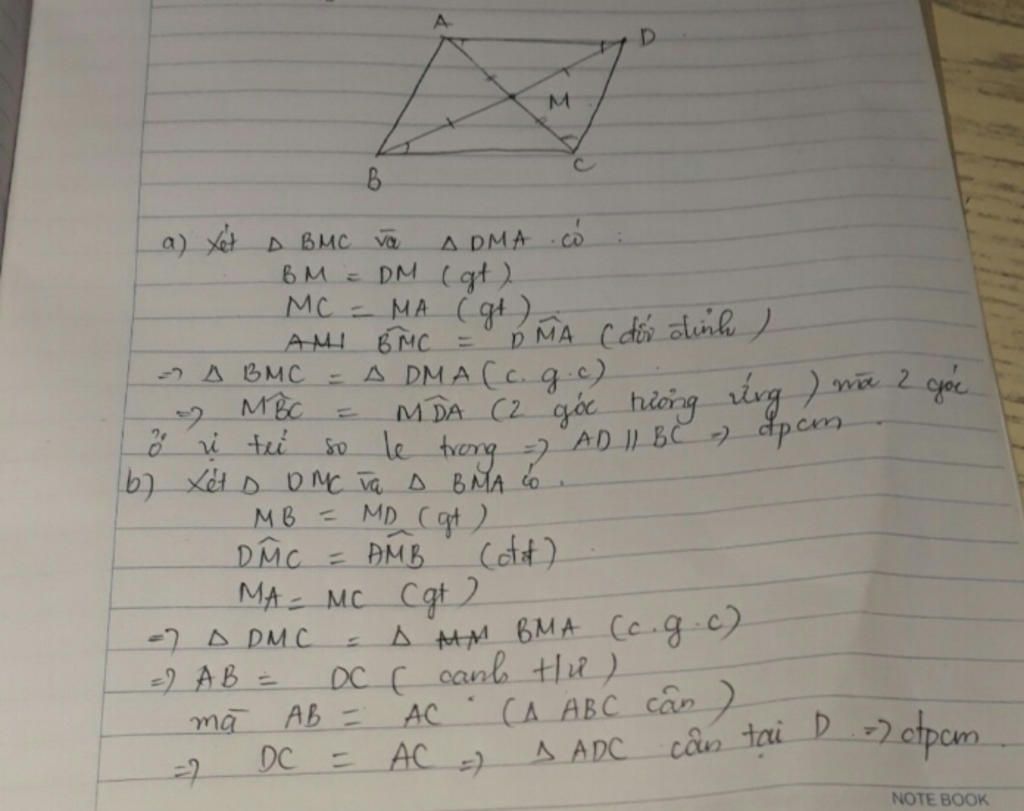 A
D
M
B
C
a) Xét Δ BMC và Δ DMA có :
BM = DM (gt)
MC = MA (gt)
AMI BMC = DMA (đối đỉnh)
=> Δ BMC = Δ DMA (c.g.c)
=> MBC = MDA (2 góc tương ứng) mà 2 góc
ở vị trí so le trong => AD // BC => đpcm.
b) Xét Δ DMC và Δ BMA có.
MB = MD (gt)
DMC = AMB (đđ)
MA = MC (gt)
=> Δ DMC = Δ MM BMA (c.g.c)
=> AB = DC (cạnh t/ư)
mà AB = AC (Δ ABC cân)
=> DC = AC => Δ ADC cân tại D => đpcm.
NOTE BOOK